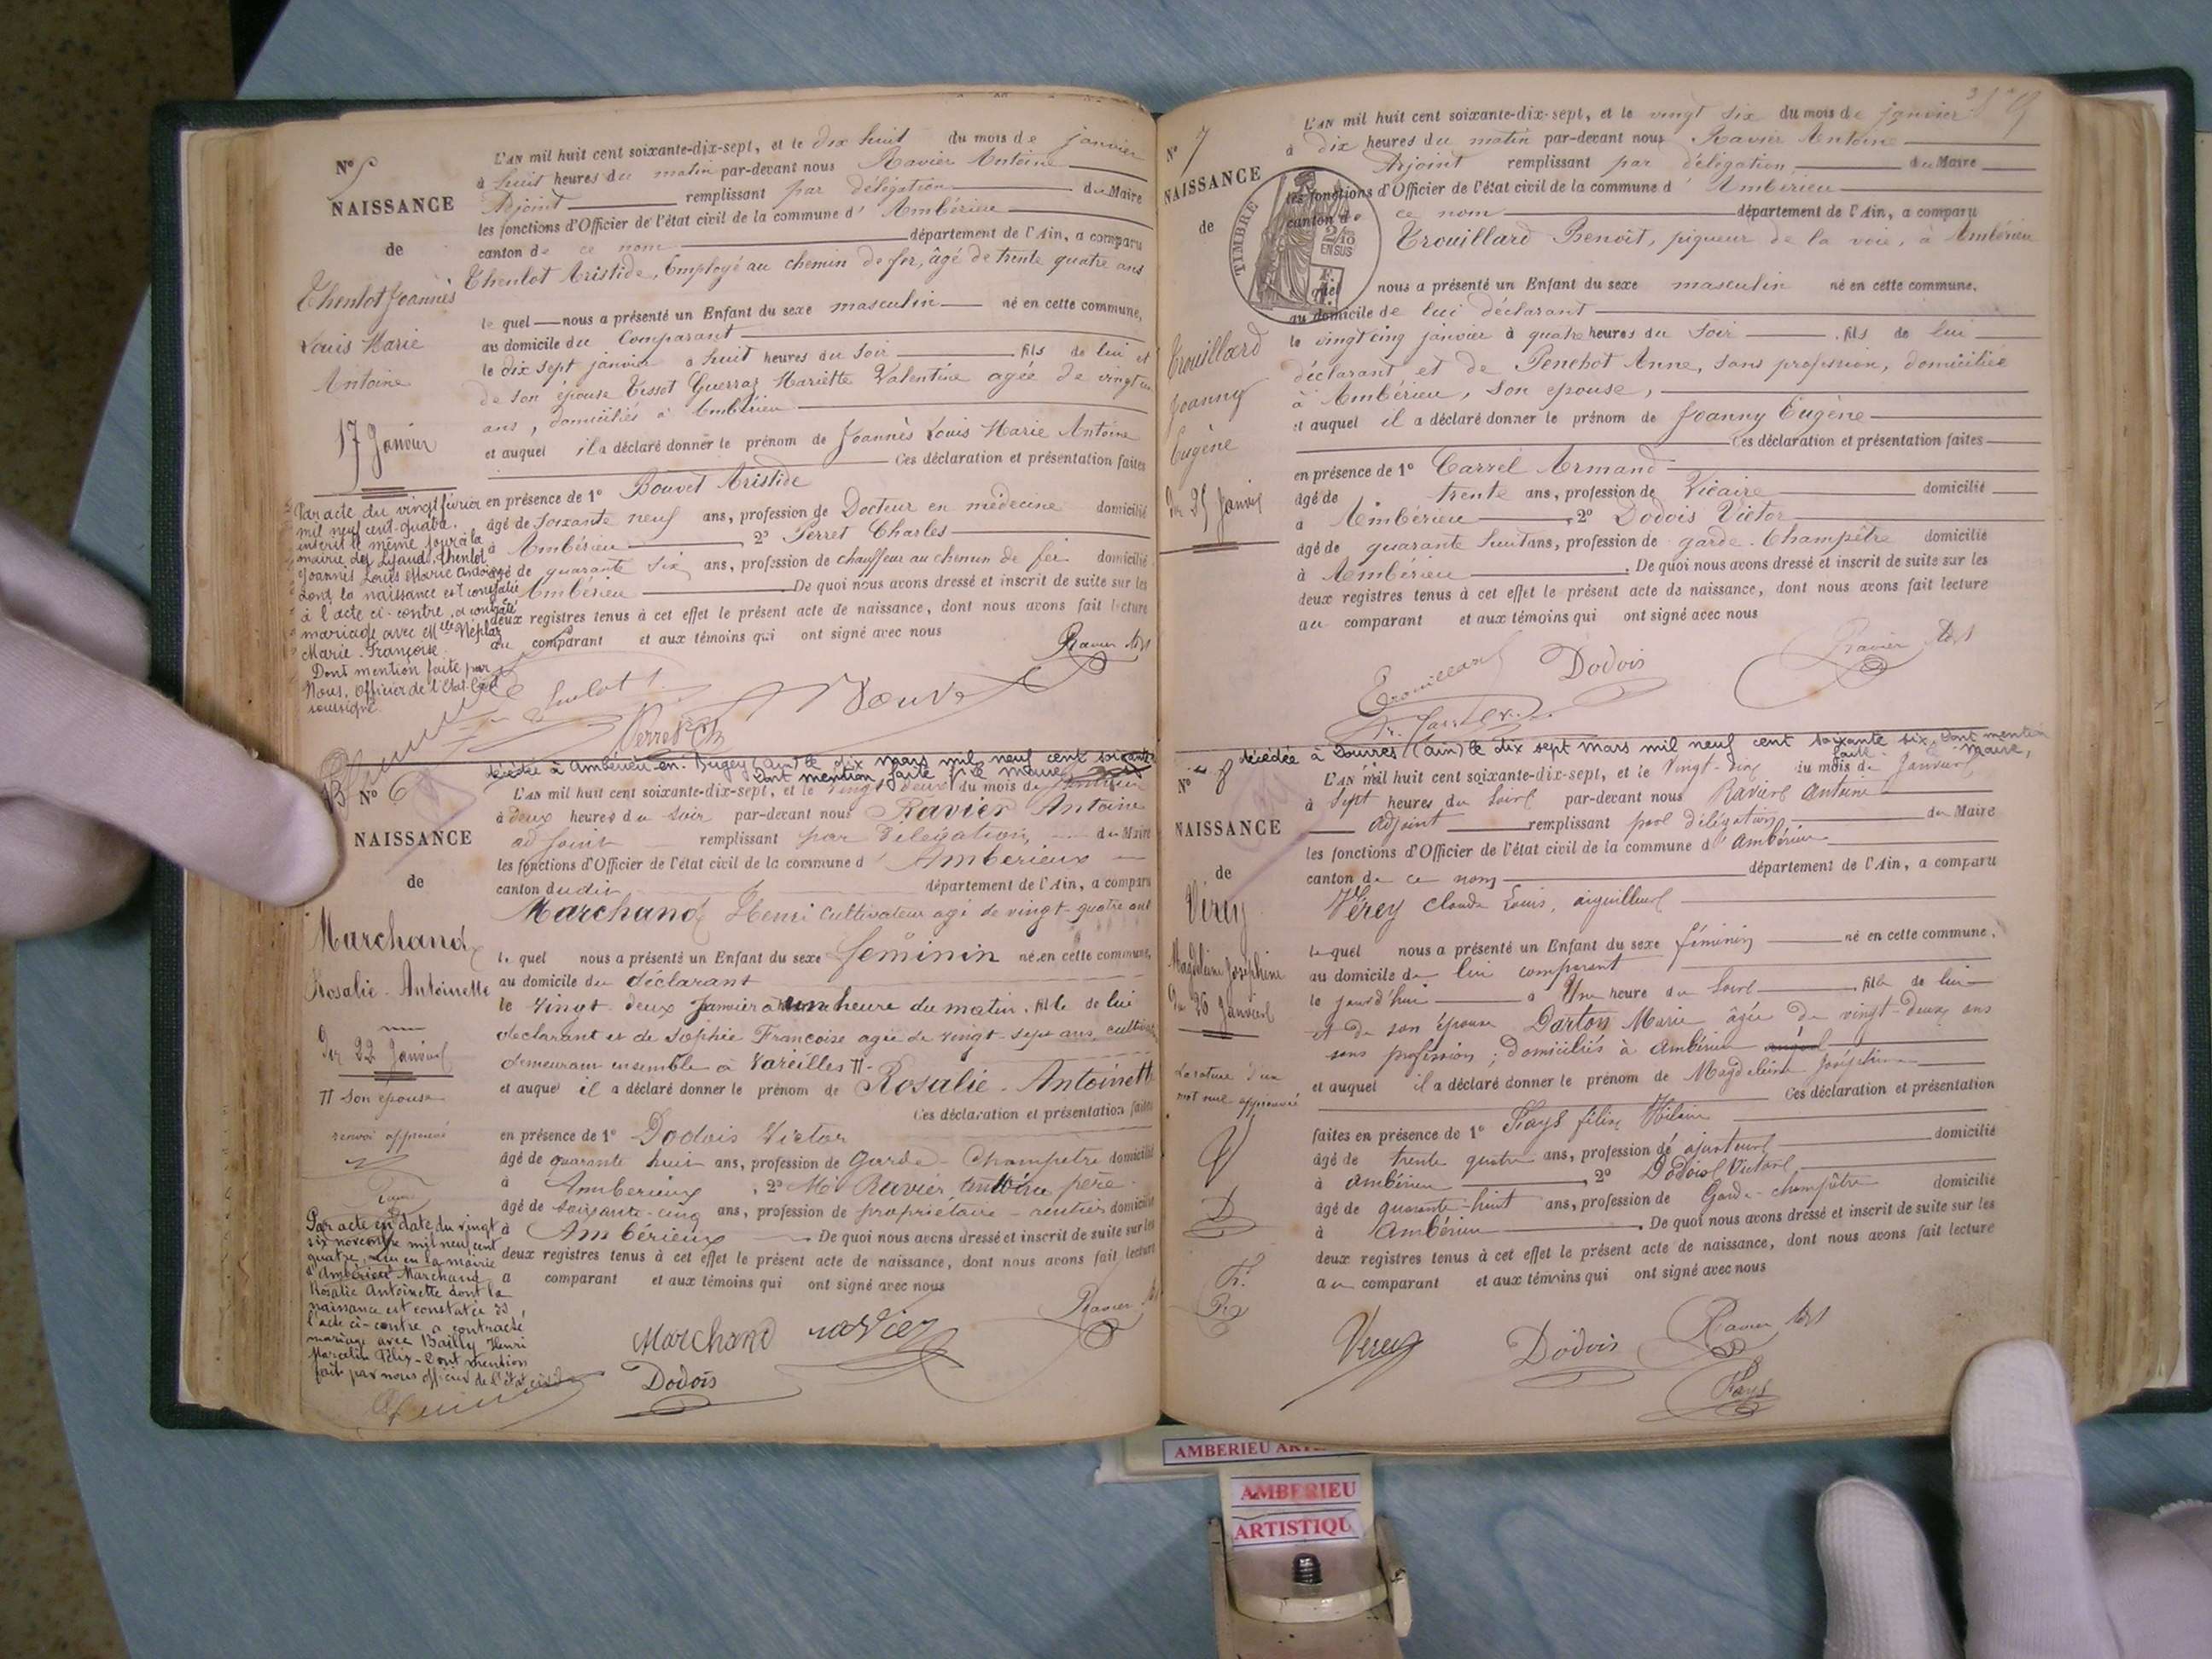 N° 5
NAISSANCE
de
Thenlot Joannès
Louis Marie
Antoine
17 Janvier
L'AN mil huit cent soixante-dix-sept, et le dix huit du mois de janvier
à huit heures du matin par-devant nous Ravier Antoine
Adjoint remplissant par délégation du Maire
les fonctions d'Officier de l'état civil de la commune d' Ambérieu
canton de ce nom département de l'Ain, a comparu
Thenlot Aristide, Employé au chemin de fer, âgé de trente quatre ans
le quel nous a présenté un Enfant du sexe masculin né en cette commune,
au domicile du Comparant
le dix sept janvier à huit heures du soir fils de lui et
de son épouse Tissot Guerraz Mariette Valentine agée de vingt un
ans, domiciliés à Ambérieu
et auquel il a déclaré donner le prénom de Joannès Louis Marie Antoine
Ces déclaration et présentation faites
en présence de 1° Bouvet Aristide
âgé de soixante neuf ans, profession de Docteur en médecine domicilié
à Ambérieu 2° Perret Charles
âgé de quarante six ans, profession de chauffeur au chemin de fer domicilié
Ambérieu De quoi nous avons dressé et inscrit de suite sur les
deux registres tenus à cet effet le présent acte de naissance, dont nous avons fait lecture
au comparant et aux témoins qui ont signé avec nous
Par acte du vingt février
mil neuf cent quatre
inscrit le même jour à la
mairie de Thenlot
Joannès Louis Marie Antoine
dont la naissance est constatée
à l'acte ci-contre, a contracté
mariage avec Melle Neplaz
Marie Françoise.
Dont mention faite par
Nous, Officier de l'Etat Civil
soussigné.
Ravier Adjt
Perret Ch
décédée à Ambérieu-en-Bugey (ain) le dix mars mil neuf cent soixante
Dont mention faite le maire
N° 6
NAISSANCE
de
Marchand
Rosalie-Antoinette
Du 22 Janvier
π son épouse
renvoi approuvé
L'AN mil huit cent soixante-dix-sept, et le vingt deux du mois de Janvier
à deux heures du soir par-devant nous Ravier Antoine
adjoint remplissant par Délégation, du Maire
les fonctions d'Officier de l'état civil de la commune d' Ambérieux
canton dudit, département de l'Ain, a comparu
Marchand Henri Cultivateur agé de vingt-quatre ans
le quel nous a présenté un Enfant du sexe féminin né en cette commune,
au domicile du déclarant
le vingt-deux Janvier à une heure du matin, fille de lui
déclarant et de Sophie Françoise agée de vingt-sept ans,
demeurant ensemble à Vareilles π
et auquel il a déclaré donner le prénom de Rosalie-Antoinette
Ces déclaration et présentation faites
en présence de 1° Dodois Victor
âgé de quarante huit ans, profession de Garde-Champêtre domicilié
à Ambérieux, 2° Mr Ravier, Antoine père
âgé de soixante-cinq ans, profession de propriétaire-rentier domicilié
à Ambérieux De quoi nous avons dressé et inscrit de suite sur les
deux registres tenus à cet effet le présent acte de naissance, dont nous avons fait lecture
a comparant et aux témoins qui ont signé avec nous
Par acte en date du vingt
six novembre mil neuf cent
quatre, en la mairie
d'Ambérieu Marchand
Rosalie Antoinette dont la
naissance est constatée à
l'acte ci-contre a contracté
mariage avec Bailly Henri
Marcelin Félix - Dont mention
faite par nous officier de l'état civil
Marchand Ravier Ravier
Dodois
N° 7
NAISSANCE
de
Trouillard
Joanny
Eugène
Du 25 Janvier
TIMBRE
2/10
EN SUS
L'AN mil huit cent soixante-dix-sept, et le vingt six du mois de janvier
à dix heures du matin par-devant nous Ravier Antoine
Adjoint remplissant par délégation du Maire
les fonctions d'Officier de l'état civil de la commune d' Ambérieu
canton de ce nom département de l'Ain, a comparu
Trouillard Benoît, piqueur de la voie, à Ambérieu
quel nous a présenté un Enfant du sexe masculin né en cette commune,
au domicile de lui déclarant
le vingt cinq janvier à quatre heures du soir, fils de lui
déclarant et de Penchot Anne, sans profession, domiciliée
à Ambérieu, son épouse,
et auquel il a déclaré donner le prénom de Joanny Eugène
Ces déclaration et présentation faites
en présence de 1° Carrel Armand
âgé de trente ans, profession de Vicaire domicilié
à Ambérieu, 2° Dodois Victor
âgé de quarante huit ans, profession de garde-Champêtre domicilié
à Ambérieu. De quoi nous avons dressé et inscrit de suite sur les
deux registres tenus à cet effet le présent acte de naissance, dont nous avons fait lecture
au comparant et aux témoins qui ont signé avec nous
Trouillard Dodois Ravier Adjt
décédée à Douvres (ain) le dix sept mars mil neuf cent soixante six. Dont mention
faite Maire,
N° 8
NAISSANCE
de
Vérey
Magdeleine Joséphine
Du 26 Janvier
La rature d'un
mot nul approuvée
L'AN mil huit cent soixante-dix-sept, et le vingt-six du mois de Janvier
à sept heures du soir par-devant nous Ravier Antoine
Adjoint remplissant par délégation du Maire
les fonctions d'Officier de l'état civil de la commune d' Ambérieu
canton de ce nom département de l'Ain, a comparu
Vérey Claude Louis, aiguilleur
lequel nous a présenté un Enfant du sexe féminin né en cette commune,
au domicile de lui comparant
le jourd'hui à Une heure du soir, fille de lui
et de son épouse Darton Marie âgée de vingt-deux ans
sans profession; domiciliés à Ambérieu
et auquel il a déclaré donner le prénom de Magdeleine Joséphine
Ces déclaration et présentation
faites en présence de 1° Kays félix Hilaire
âgé de trente quatre ans, profession de ajusteur domicilié
à Ambérieu, 2° Dodois Victor
âgé de quarante-huit ans, profession de Garde-champêtre domicilié
à Ambérieu. De quoi nous avons dressé et inscrit de suite sur les
deux registres tenus à cet effet le présent acte de naissance, dont nous avons fait lecture
au comparant et aux témoins qui ont signé avec nous
Verey Dodois Ravier Adjt
Kays
AMBERIEU
AMBERIEU
ARTISTIQU